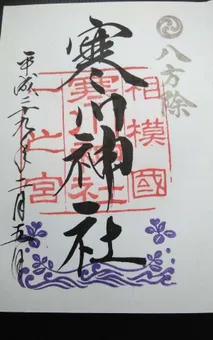 八方除
相模國
寒川神社
寒川神社
一之宮
平成 月五日